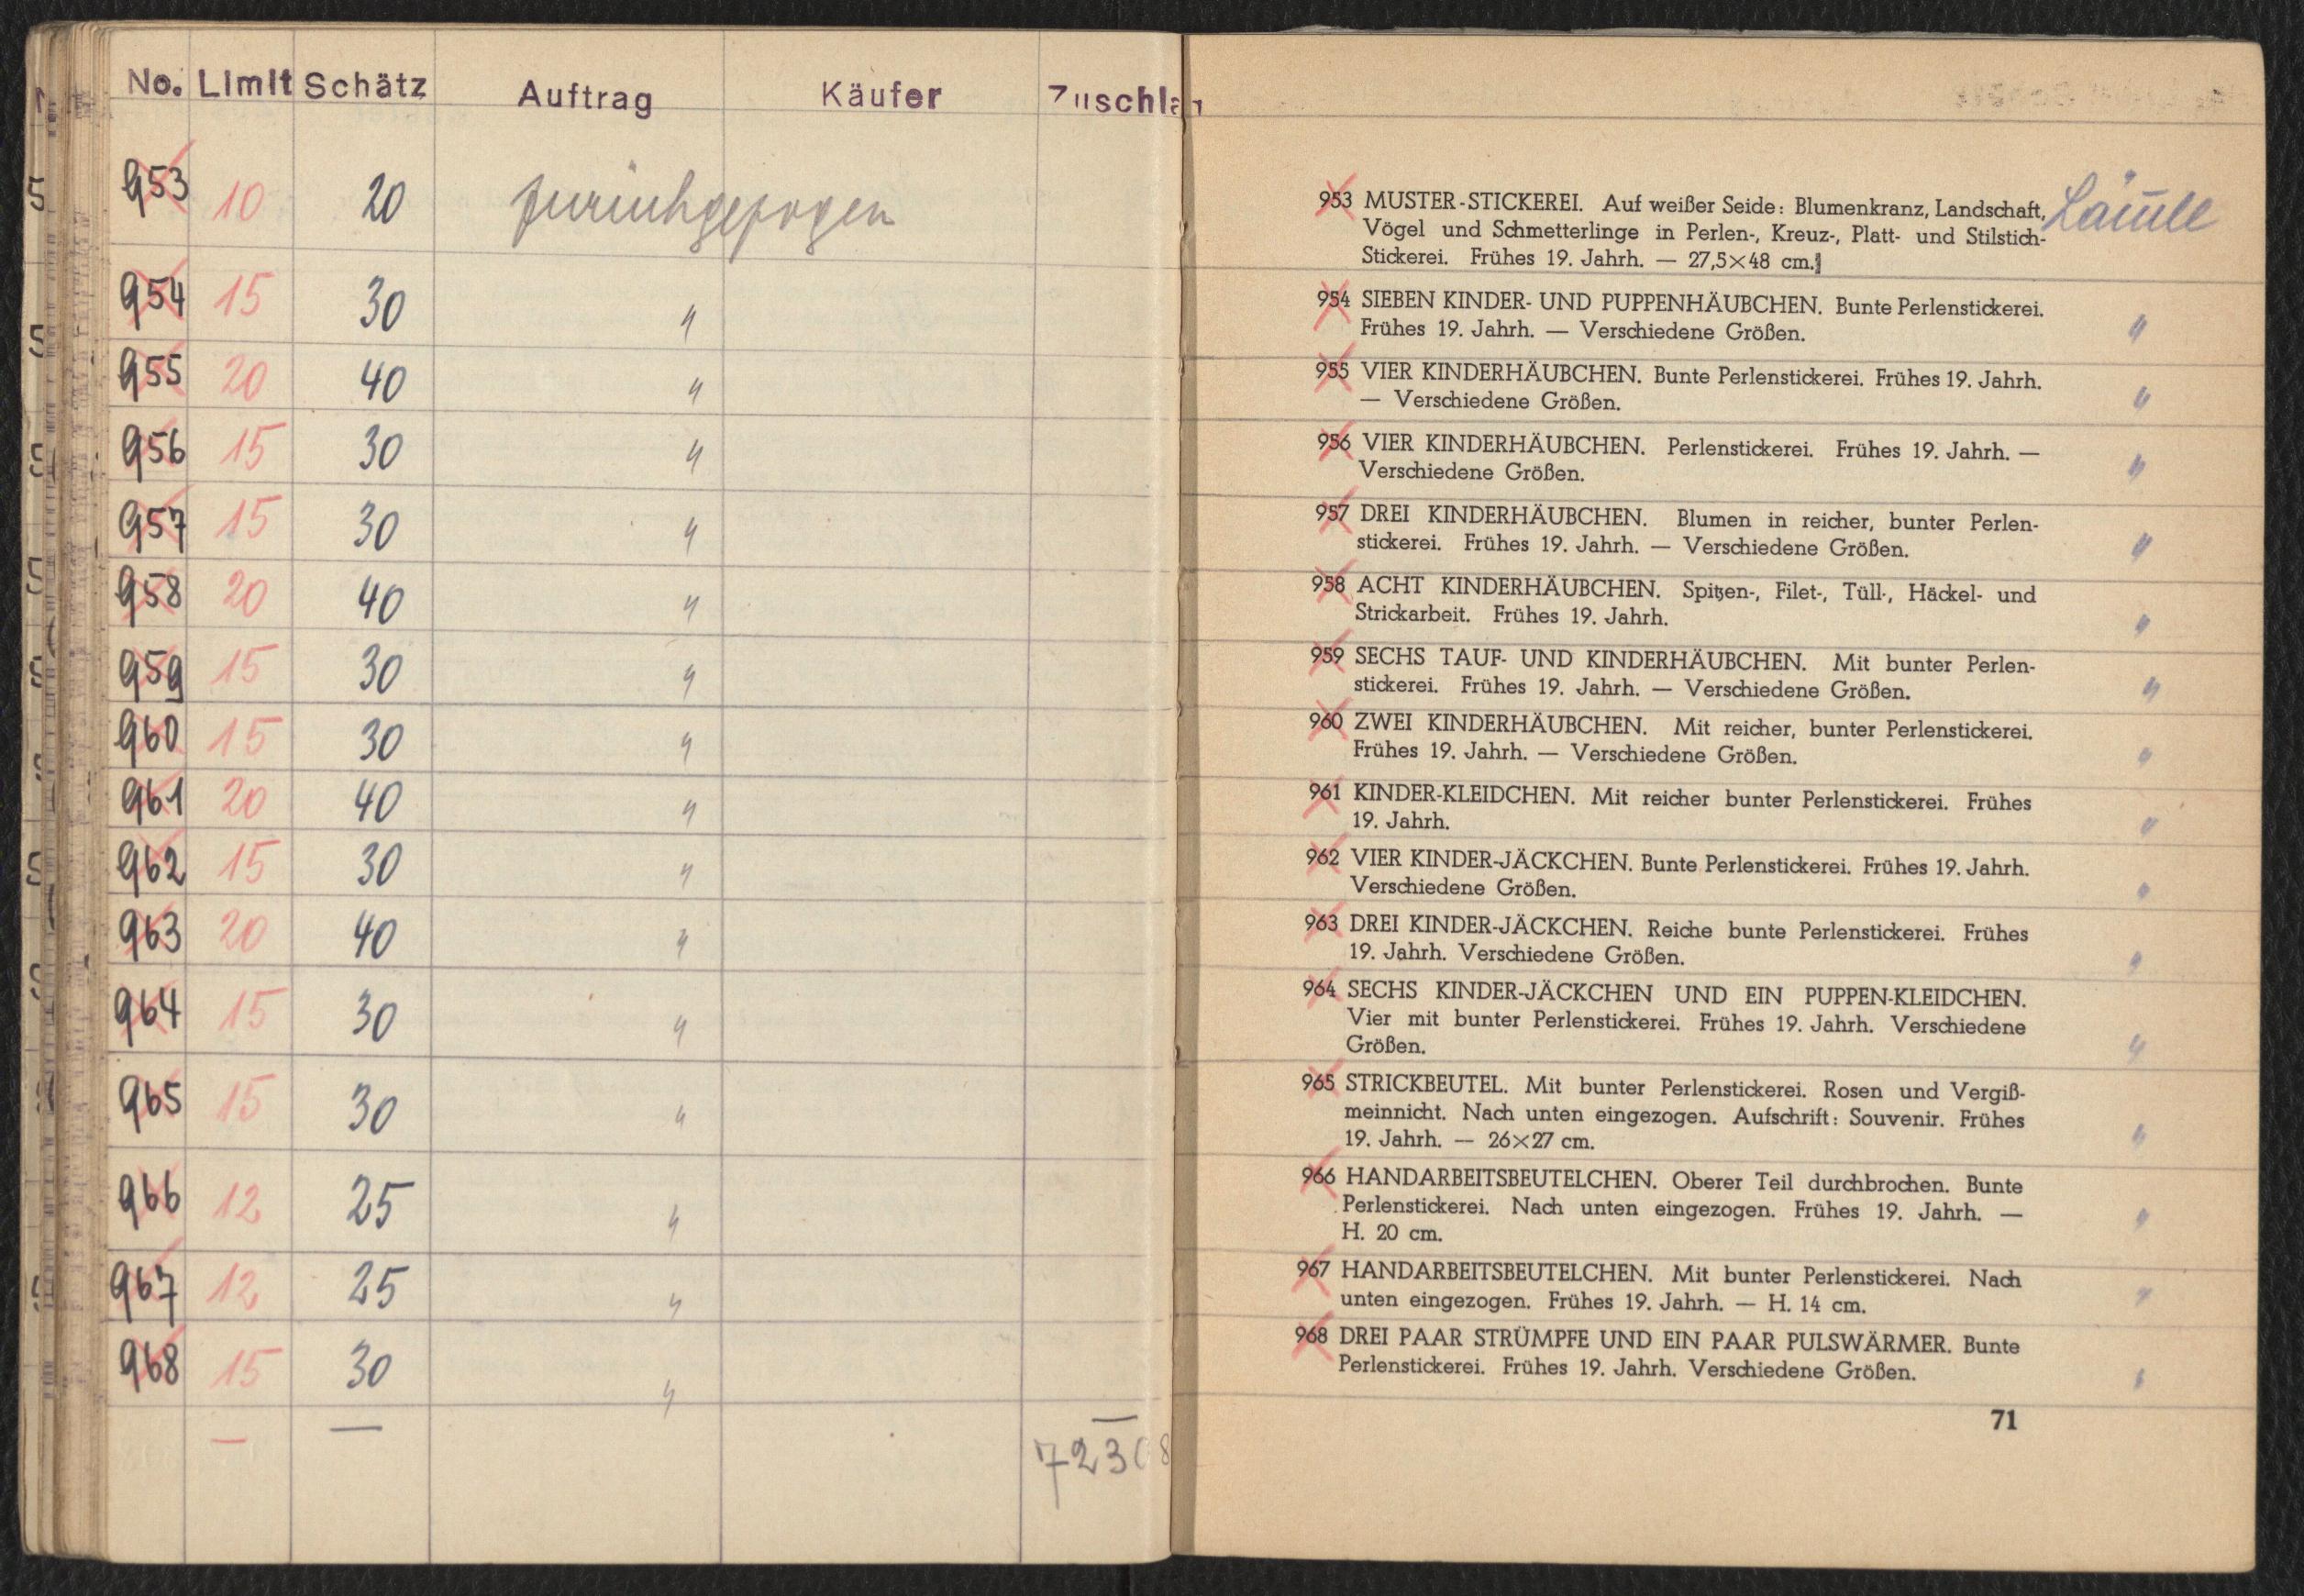 No. Limit Schätz Auftrag Käufer Zuschlag
953 10 20 zurückgezogen
954 15 30 "
955 20 40 "
956 15 30 "
957 15 30 "
958 20 40 "
959 15 30 "
960 15 30 "
961 20 40 "
962 15 30 "
963 20 40 "
964 15 30 "
965 15 30 "
966 12 25 "
967 12 25 "
968 15 30 "
— — —
953 MUSTER-STICKEREI. Auf weißer Seide: Blumenkranz, Landschaft,
Vögel und Schmetterlinge in Perlen-, Kreuz-, Platt- und Stilstich-
Stickerei. Frühes 19. Jahrh. — 27,5×48 cm.
954 SIEBEN KINDER- UND PUPPENHÄUBCHEN. Bunte Perlenstickerei. "
Frühes 19. Jahrh. — Verschiedene Größen.
955 VIER KINDERHÄUBCHEN. Bunte Perlenstickerei. Frühes 19. Jahrh. "
— Verschiedene Größen.
956 VIER KINDERHÄUBCHEN. Perlenstickerei. Frühes 19. Jahrh. — "
Verschiedene Größen.
957 DREI KINDERHÄUBCHEN. Blumen in reicher, bunter Perlen- "
stickerei. Frühes 19. Jahrh. — Verschiedene Größen.
958 ACHT KINDERHÄUBCHEN. Spitzen-, Filet-, Tüll-, Häckel- und "
Strickarbeit. Frühes 19. Jahrh.
959 SECHS TAUF- UND KINDERHÄUBCHEN. Mit bunter Perlen- "
stickerei. Frühes 19. Jahrh. — Verschiedene Größen.
960 ZWEI KINDERHÄUBCHEN. Mit reicher, bunter Perlenstickerei. "
Frühes 19. Jahrh. — Verschiedene Größen.
961 KINDER-KLEIDCHEN. Mit reicher bunter Perlenstickerei. Frühes "
19. Jahrh.
962 VIER KINDER-JÄCKCHEN. Bunte Perlenstickerei. Frühes 19. Jahrh. "
Verschiedene Größen.
963 DREI KINDER-JÄCKCHEN. Reiche bunte Perlenstickerei. Frühes "
19. Jahrh. Verschiedene Größen.
964 SECHS KINDER-JÄCKCHEN UND EIN PUPPEN-KLEIDCHEN. "
Vier mit bunter Perlenstickerei. Frühes 19. Jahrh. Verschiedene
Größen.
965 STRICKBEUTEL. Mit bunter Perlenstickerei. Rosen und Vergiß- "
meinnicht. Nach unten eingezogen. Aufschrift: Souvenir. Frühes
19. Jahrh. — 26×27 cm.
966 HANDARBEITSBEUTELCHEN. Oberer Teil durchbrochen. Bunte "
Perlenstickerei. Nach unten eingezogen. Frühes 19. Jahrh. —
H. 20 cm.
967 HANDARBEITSBEUTELCHEN. Mit bunter Perlenstickerei. Nach "
unten eingezogen. Frühes 19. Jahrh. — H. 14 cm.
968 DREI PAAR STRÜMPFE UND EIN PAAR PULSWÄRMER. Bunte "
Perlenstickerei. Frühes 19. Jahrh. Verschiedene Größen.
71